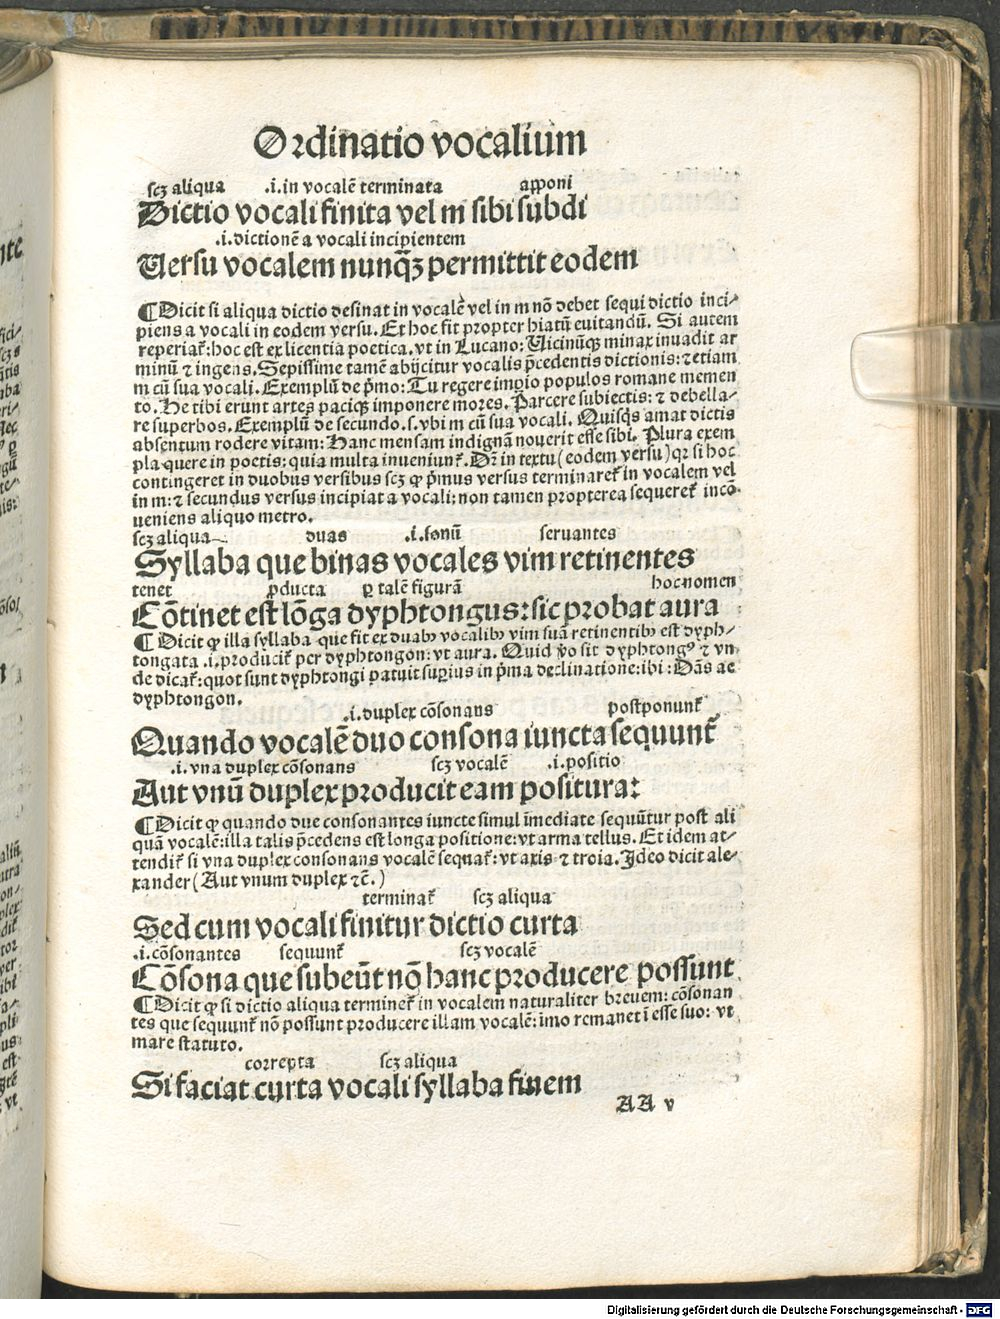 Ordinatio vocalium
scꝫ aliqua .i. in vocalē terminata apponi
Dictio vocali finita vel m sibi subdi
.i. dictionē a vocali incipientem
Uersu vocalem nunqꝫ permittit eodem
¶ Dicit si aliqua dictio desinat in vocalē vel in m nō debet sequi dictio inci-
piens a vocali in eodem versu. Et hoc fit propter hiatū euitandū. Si autem
reperiat᷑: hoc est ex licentia poetica. vt in Lucano: Uicinūqꝫ minax inuadit ar
minū ⁊ ingens. Sepissime tamē abijcitur vocalis p̄cedentis dictionis: ⁊ etiam
m cū sua vocali. Exemplū de p̄mo: Tu regere impio populos romane memen
to. He tibi erunt artes paciqꝫ imponere mores. Parcere subiectis: ⁊ debella-
re superbos. Exemplū de secundo. s. vbi m cū sua vocali. Quisq̇s amat dictis
absentum rodere vitam: Hanc mensam indignā nouerit esse sibi. Plura exem
pla quere in poetis: quia multa inueniunt᷑. Dr̄ in textu (eodem versu) qꝛ si hoc
contingeret in duobus versibus scꝫ ꝙ p̄mus versus terminaret᷑ in vocalem vel
in m: ⁊ secundus versus incipiat a vocali: non tamen propterea sequeret᷑ incō-
ueniens aliquo metro.
scꝫ aliqua duas .i. sonū servantes
Syllaba que binas vocales vim retinentes
tenet ꝓducta ꝑ talē figurā hoc nomen
Cōtinet est lōga dyphtongus: sic probat aura
¶ Dicit ꝙ illa syllaba que fit ex duabꝫ vocalibꝫ vim suā retinentibꝫ est dyph-
tongata .i. producit᷑ per dyphtongon: vt aura. Quid v̊o sit dyphtongꝰ ⁊ vn
de dicat᷑: quot sunt dyphtongi patuit supius in p̄ma declinatione: ibi: Dās ae
dyphtongon.
.i. duplex cōsonans postponunt᷑
Quando vocalē duo consona iuncta sequunt᷑
.i. vna duplex cōsonans scꝫ vocalē .i. positio
Aut vnū duplex producit eam positura:
¶ Dicit ꝙ quando due consonantes iuncte simul īmediate sequūtur post ali
quā vocalē: illa talis p̄cedens est longa positione: vt arma tellus. Et idem at-
tendit᷑ si vna duplex consonans vocalē sequat᷑: vt axis ⁊ troia. Ideo dicit ale-
xander (Aut vnum duplex ⁊c̄.)
terminat᷑ scꝫ aliqua
Sed cum vocali finitur dictio curta
.i. cōsonantes sequunt᷑ scꝫ vocalē
Cōsona que subeūt nō hanc producere possunt
¶ Dicit ꝙ si dictio aliqua terminet᷑ in vocalem naturaliter breuem: cōsonan
tes que sequunt᷑ nō possunt producere illam vocalē: imo remanet ī esse suo: vt
mare statuto.
correpta scꝫ aliqua
Si faciat curta vocali syllaba finem
AA v
Digitalisierung gefördert durch die Deutsche Forschungsgemeinschaft - DFG